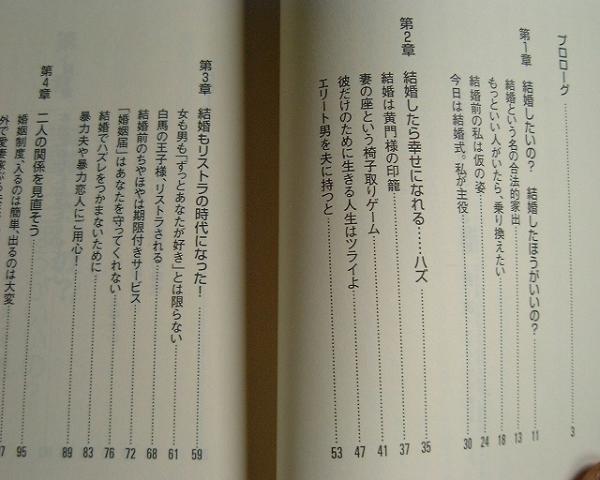 プロローグ……3
第1章 結婚したいの? 結婚したほうがいいの?……11
結婚という名の合法的家出……13
もっといい人がいたら、乗り換えたい……18
結婚前の私は仮の姿……24
今日は結婚式。私が主役……30
第2章 結婚したら幸せになれる……ハズ……35
結婚は黄門様の印籠……37
妻の座という椅子取りゲーム……41
彼だけのために生きる人生はツライよ……47
エリート男を夫に持つと……53
第3章 結婚もリストラの時代になった!……59
女も男も「ずっとあなたが好き」とは限らない……61
白馬の王子様、リストラされる……68
結婚前のちやほやは期限付きサービス……72
「婚姻届」はあなたを守ってくれない……76
結婚でハズレをつかまないために……83
暴力夫や暴力恋人にご用心!……89
第4章 二人の関係を見直そう……95
婚姻制度、入るのは簡単、出るのは大変……7
外で